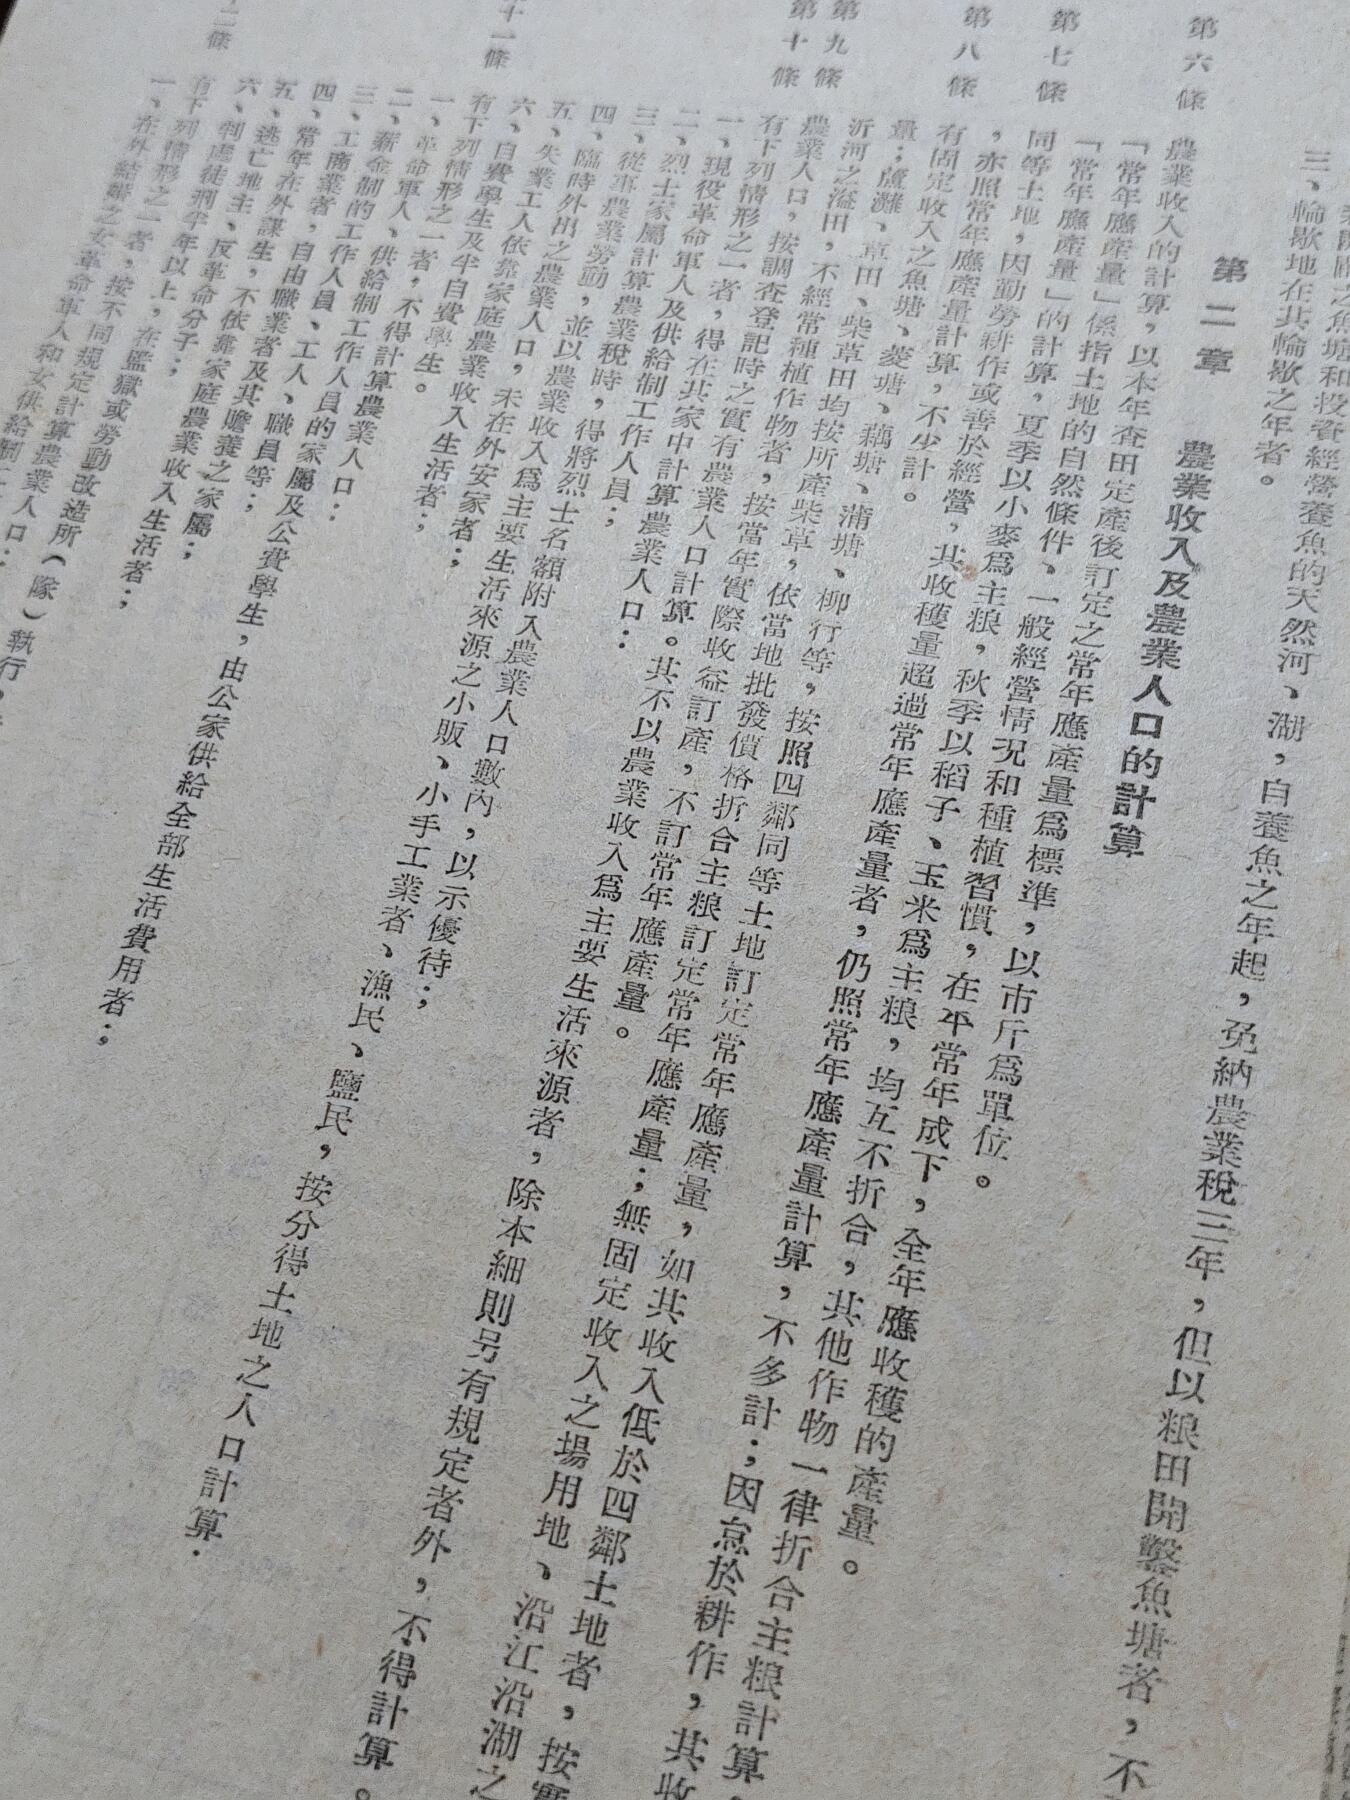 業開闢之魚塘和投資經營養魚的天然河、湖,自養魚之年起,免納農業稅三年,但以粮田開鑿魚塘者,不
三、輪歇地在其輪歇之年者。
第二章 農業收入及農業人口的計算
第六條 農業收入的計算,以本年查田定產後訂定之常年應產量爲標準,以市斤爲單位。
「常年應產量」係指土地的自然條件、一般經營情況和種植習慣,在平常年成下,全年應收穫的產量。
「常年應產量」的計算,夏季以小麥爲主粮,秋季以稻子、玉米爲主粮,均互不折合,其他作物一律折合主粮計算。
第七條 同等土地,因勤勞耕作或善於經營,其收穫量超過常年應產量者,仍照常年應產量計算,不多計;因怠於耕作,其收
,亦照常年應產量計算,不少計。
第八條 有固定收入之魚塘、菱塘、藕塘、蒲塘、柳行等,按照四鄰同等土地訂定常年應產量,如其收入低於四鄰土地者,按實
量;蘆灘、草田、柴草田均按所產柴草,依當地批發價格折合主粮訂定常年應產量;無固定收入之場用地、沿江沿湖之
沂河之溢田,不經常種植作物者,按當年實際收益訂產,不訂常年應產量。
第九條 農業人口,按調查登記時之實有農業人口計算。其不以農業收入爲主要生活來源者,除本細則另有規定者外,不得計算。
第十條 有下列情形之一者,得在其家中計算農業人口:
一、現役革命軍人及供給制工作人員;
二、烈士家屬計算農業稅時,得將烈士名額附入農業人口數內,以示優待;
三、從事農業勞動,並以農業收入爲主要生活來源之小販、小手工業者、漁民、鹽民,按分得土地之人口計算.
四、臨時外出之農業人口,未在外安家者;
五、失業工人依靠家庭農業收入生活者;
六、自費學生及半自費學生。
十一條 有下列情形之一者,不得計算農業人口:
一、革命軍人、供給制工作人員的家屬及公費學生,由公家供給全部生活費用者;
二、薪金制的工作人員、工人、職員等;
三、工商業者,自由職業者及其贍養之家屬;
四、常年在外謀生,不依靠家庭農業收入生活者;
五、逃亡地主、反革命分子;
六、判處徒刑半年以上,在監獄或勞動改造所(隊)執行,
二條 有下列情形之一者,按不同規定計算農業人口:
一、在外結婚之女革命軍人和女供給制工